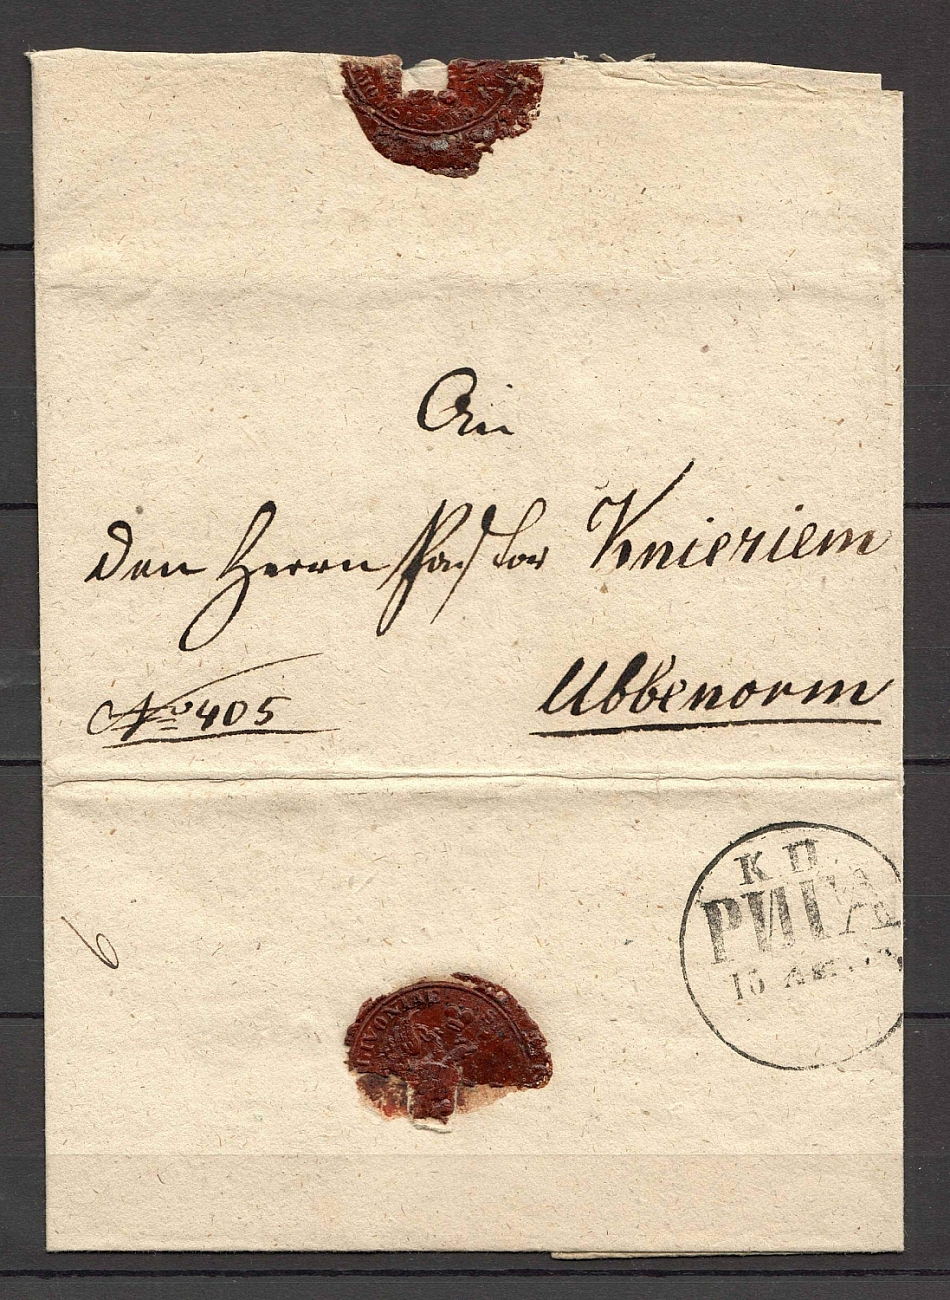 An
den Herrn Pastor Knieriem
Ubbenorm
No 405
К П
РИГА
15
6
LIVONIAE